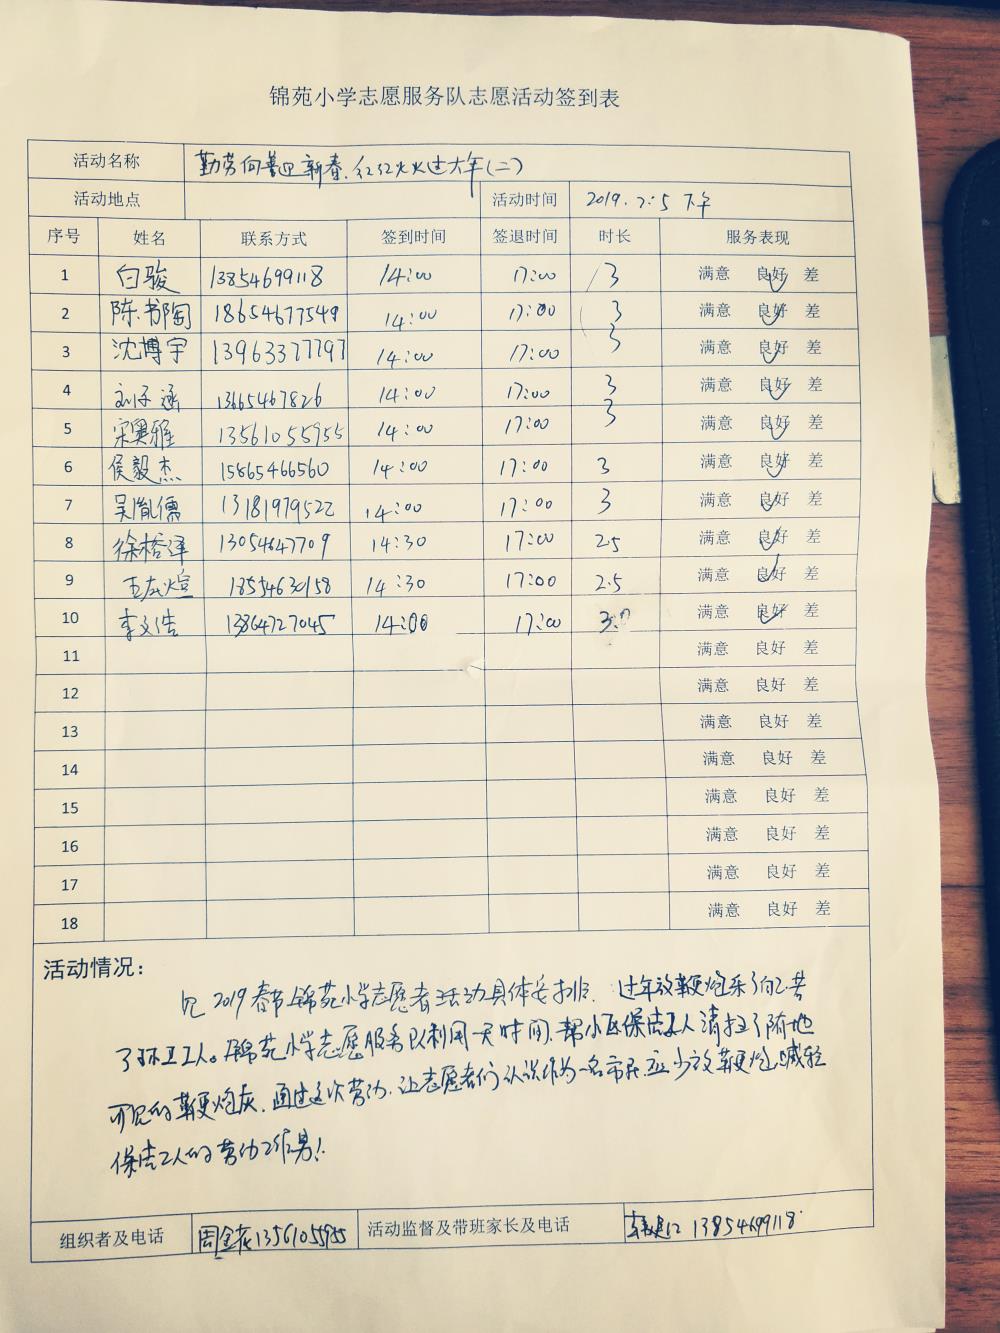 锦苑小学志愿服务队志愿活动签到表
活动名称 勤劳向善迎新春.红红火火过大年(二)
活动地点 活动时间 2019.2.5 下午
序号 姓名 联系方式 签到时间 签退时间 时长 服务表现
1 白骏 13854699118 14:00 17:00 3 满意 良好 差
2 陈书陶 18654677549 14:00 17:00 3 满意 良好 差
3 沈博宇 13963377797 14:00 17:00 3 满意 良好 差
4 刘子涵 13665467826 14:00 17:00 3 满意 良好 差
5 宋奥雅 13561055955 14:00 17:00 3 满意 良好 差
6 侯毅杰 15865466560 14:00 17:00 3 满意 良好 差
7 吴胤儒 13181979522 14:00 17:00 3 满意 良好 差
8 徐梧泽 13054647709 14:30 17:00 2.5 满意 良好 差
9 14:30 17:00 2.5 满意 良好 差
10 李文浩 13864727045 14:00 17:00 3.0 满意 良好 差
11 满意 良好 差
12 满意 良好 差
13 满意 良好 差
14 满意 良好 差
15 满意 良好 差
16 满意 良好 差
17 满意 良好 差
18 满意 良好 差
活动情况：
见2019春节锦苑小学志愿者活动具体安排.过年放鞭炮乐了自己苦
了环卫工人。锦苑小学志愿服务队利用一天时间.帮小区保洁工人清扫了随地
可见的鞭炮灰.通过这次劳动.让志愿者们认识作为一名市民应少放鞭炮.减轻
保洁工人的劳动工作累!
组织者及电话 13561055955 活动监督及带班家长及电话 13854699118